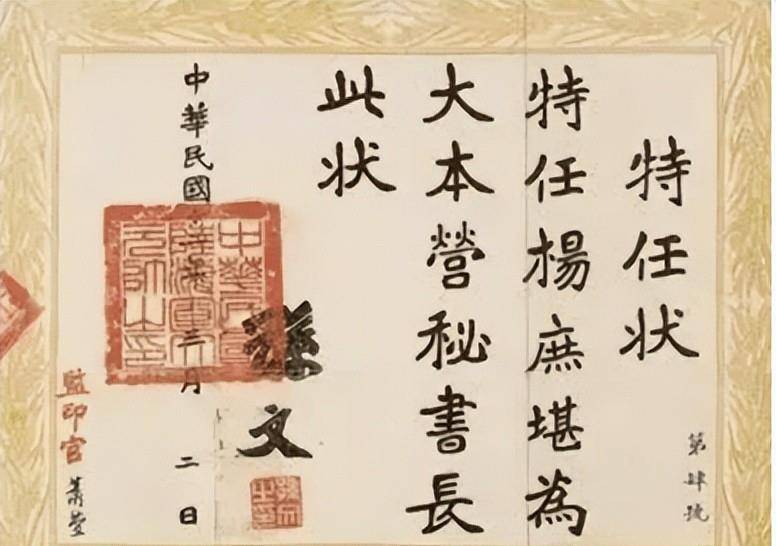 第肆號
特任状
特任楊庶堪為
大本營秘書長
此状
孫文
孫文之印
中華民國 三月二日
中華民國
陸海軍大
元帥之印
監印官 蕭萱